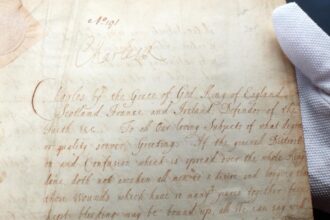 No 191
Charles R
Charles by the Grace of God, King of England
Scotland France and Ireland Defender of the
Faith &c. To all Our loving Subjects of what degre
or quality soever Greeting. If the general Distract
and Confusion which is spread over the whole King
doth not awaken all men to a desire and longing
those Wounds which have so many years together been
kept bleeding may be bound up, all We can say will